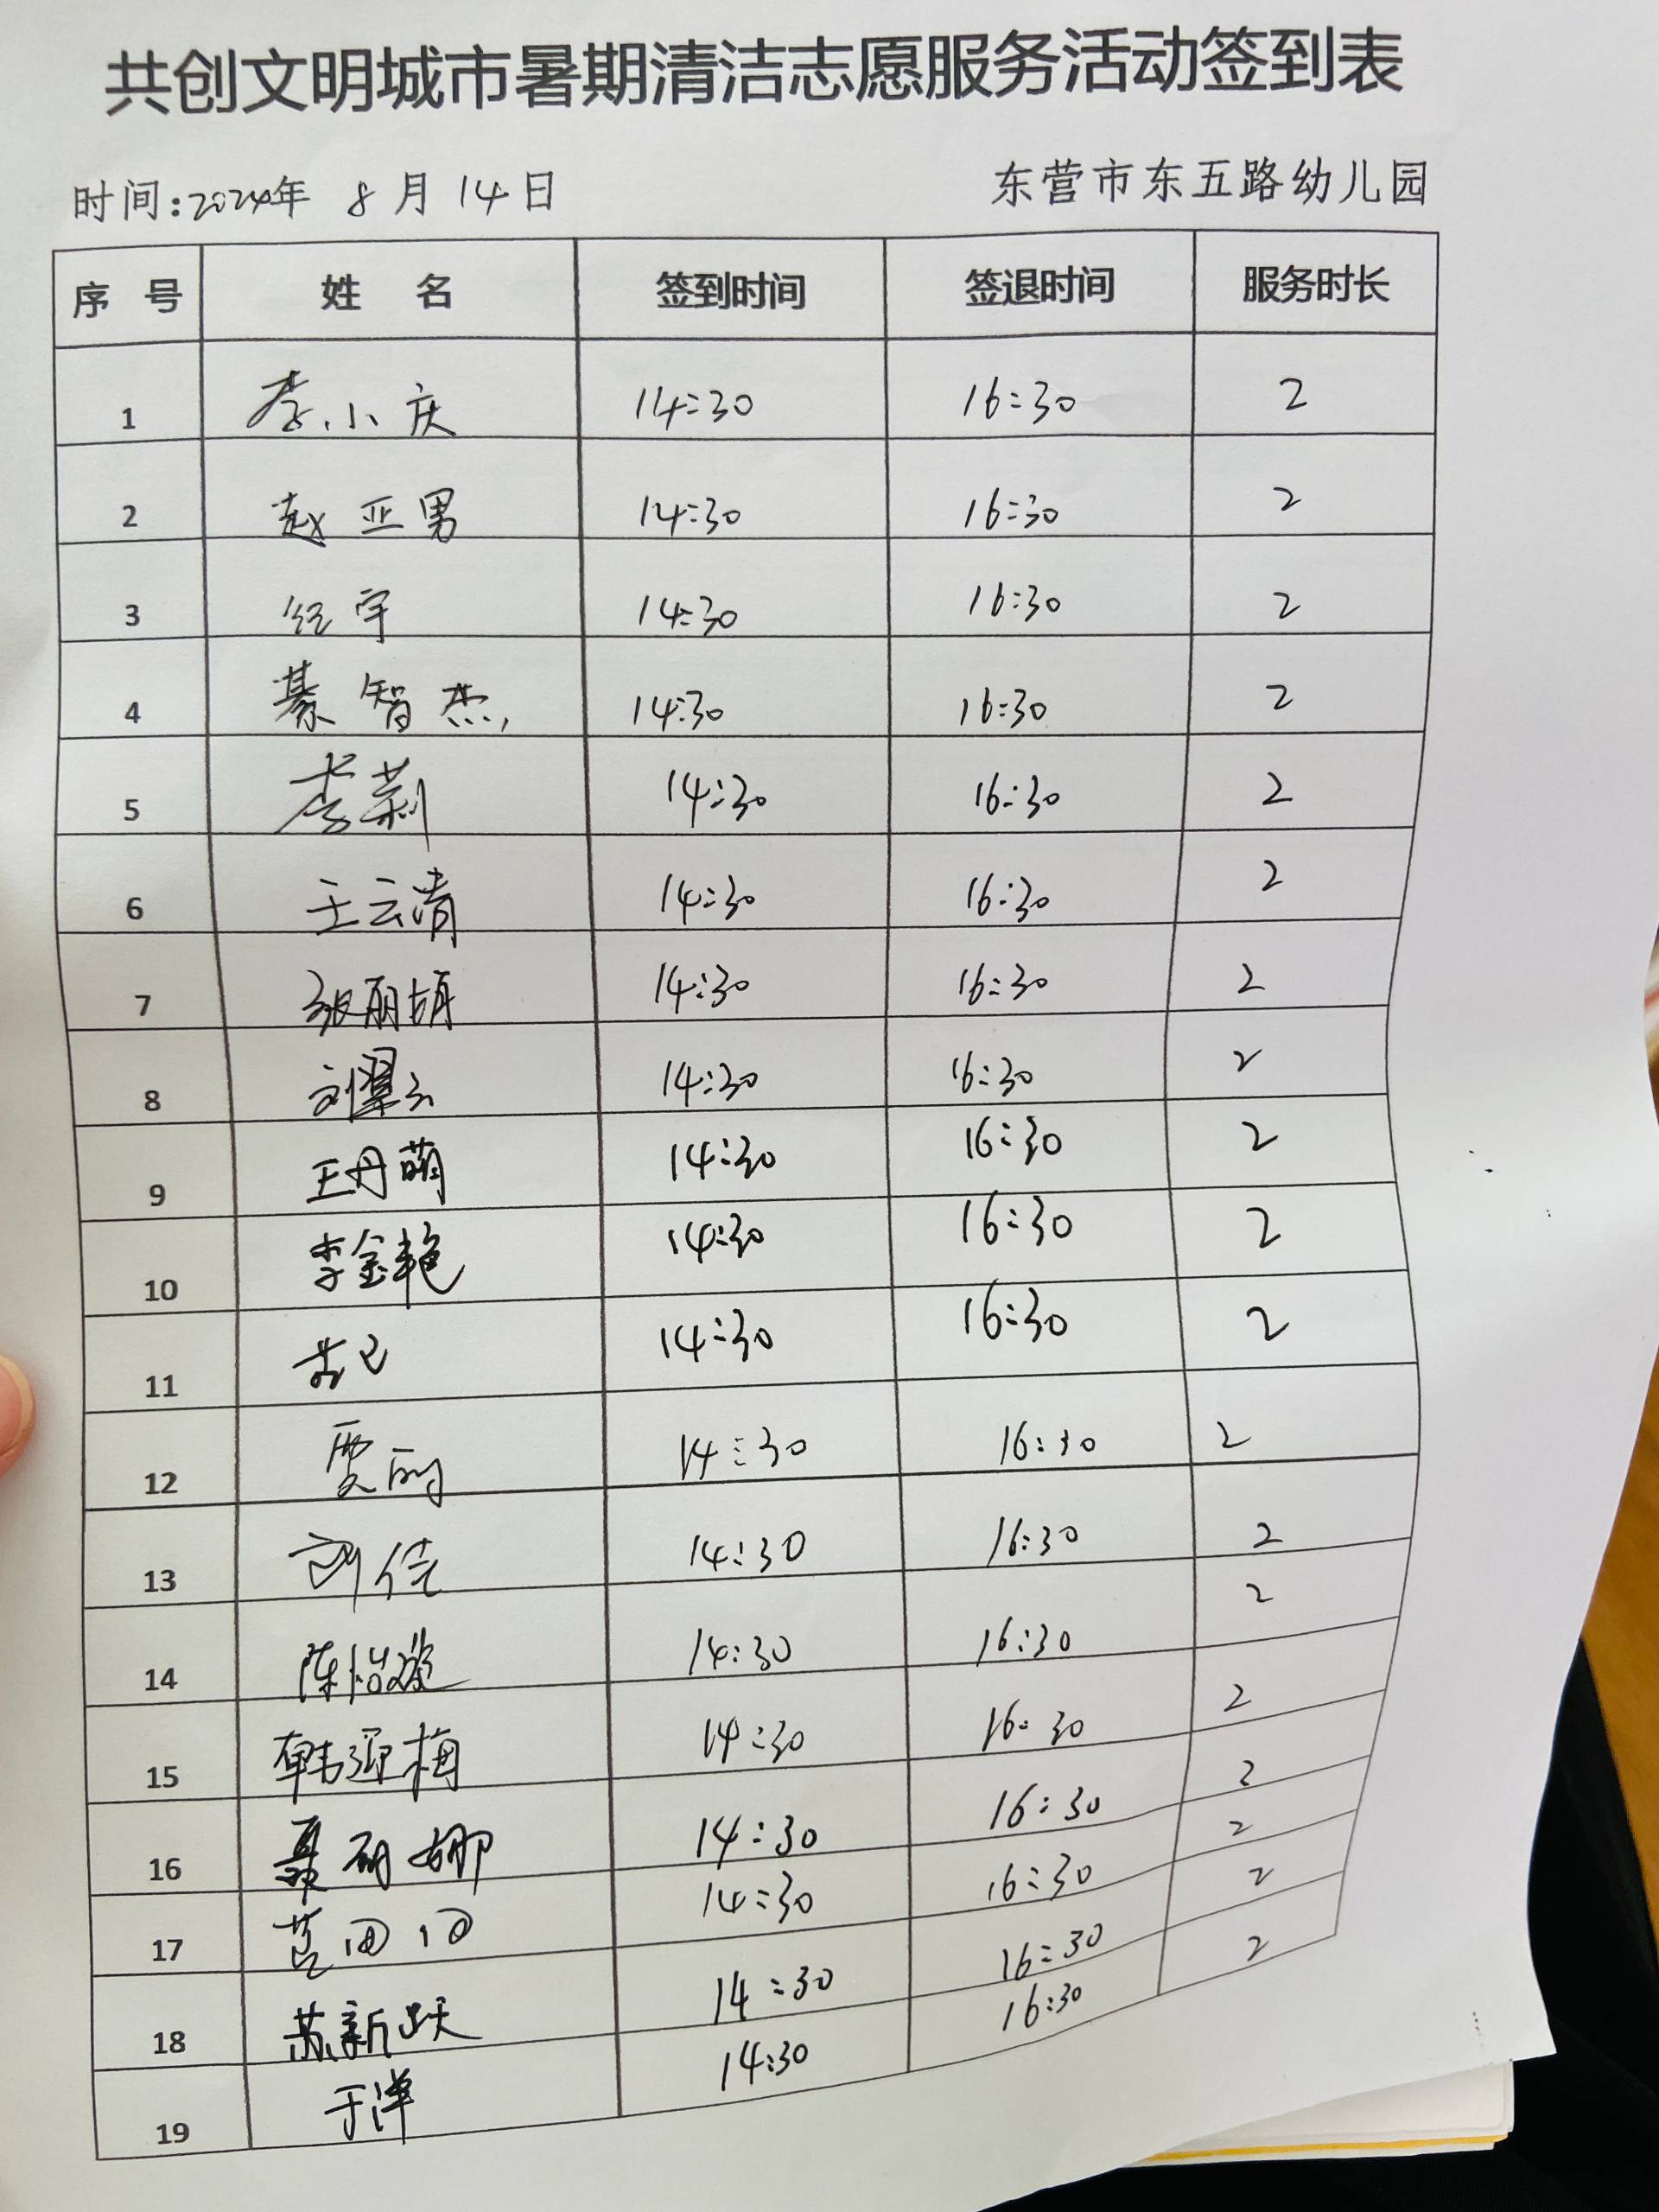 共创文明城市暑期清洁志愿服务活动签到表
时间:2024年 8月14日 东营市东五路幼儿园
序号 姓名 签到时间 签退时间 服务时长
1 李小庆 14:30 16:30 2
2 赵亚男 14:30 16:30 2
3 任宇 14:30 16:30 2
4 綦智杰 14:30 16:30 2
5 李莉 14:30 16:30 2
6 王云清 14:30 16:30 2
7 张丽娟 14:30 16:30 2
8 刘翠云 14:30 16:30 2
9 王丹萌 14:30 16:30 2
10 李金艳 14:30 16:30 2
11 14:30 16:30 2
12 贾丽 14:30 16:30 2
13 刘佳 14:30 16:30 2
14 陈怡璇 14:30 16:30 2
15 韩迎梅 14:30 16:30 2
16 聂丽娜 14:30 16:30 2
17 14:30 16:30 2
18 苏新跃 14:30 16:30 2
19 于洋 14:30 16:30 2